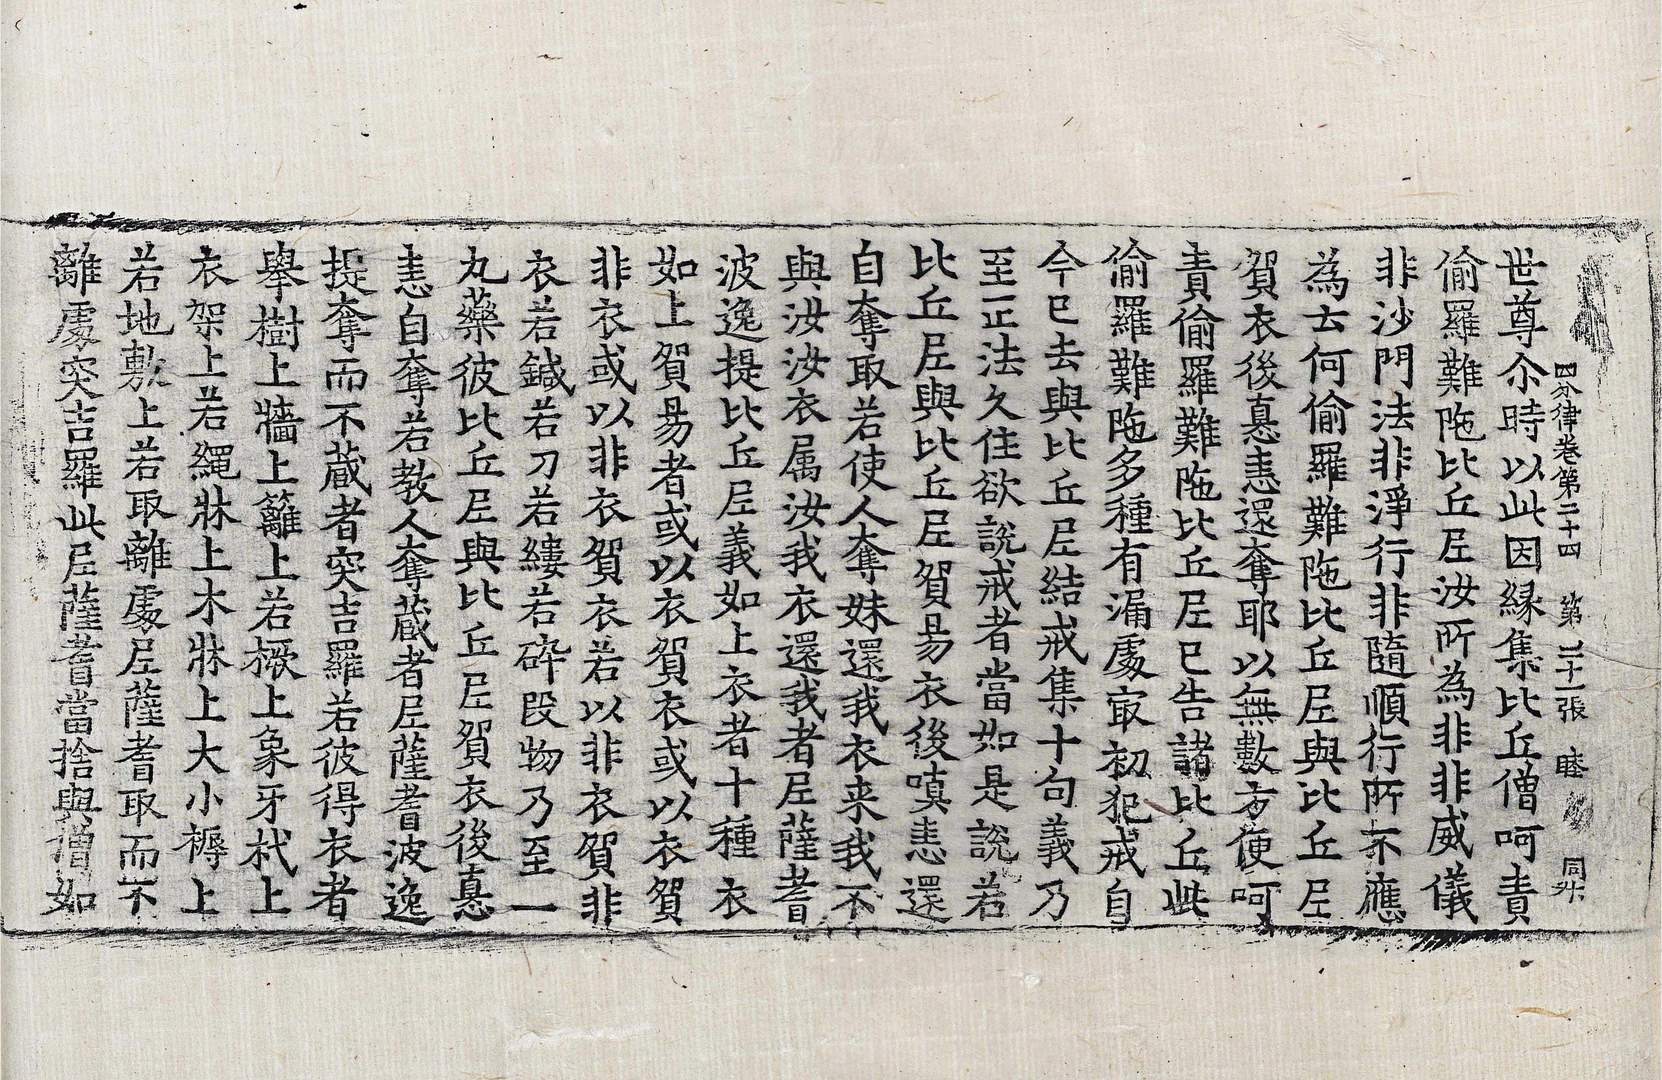 四分律卷第二十四 第二十一張 睦 同升
世尊尒時以此因緣集比丘僧呵責
偷羅難陁比丘尼汝所為非非威儀
非沙門法非淨行非隨順行所不應
為云何偷羅難陁比丘尼與比丘尼
貿衣後恚恚還奪耶以無數方便呵
責偷羅難陁比丘尼已告諸比丘此
偷羅難陁多種有漏處冣初犯戒自
今已去與比丘尼結戒集十句義乃
至正法久住欲說戒者當如是說若
比丘尼與比丘尼貿易衣後嗔恚還
自奪取若使人奪妹還我衣来我不
與汝汝衣属汝我衣還我者尼薩耆
波逸提比丘尼義如上衣者十種衣
如上貿易者或以衣貿衣或以衣貿
非衣或以非衣貿衣若以非衣貿非
衣若鍼若刀若縷若碎段物乃至一
丸藥彼比丘尼與比丘尼貿衣後恚
恚自奪若教人奪藏者尼薩耆波逸
提奪而不藏者突吉羅若彼得衣者
舉樹上牆上籬上若橛上象牙杙上
衣架上若繩牀上木牀上大小褥上
若地敷上若取離處尼薩耆取而不
離處突吉羅此尼薩耆當捨與僧如